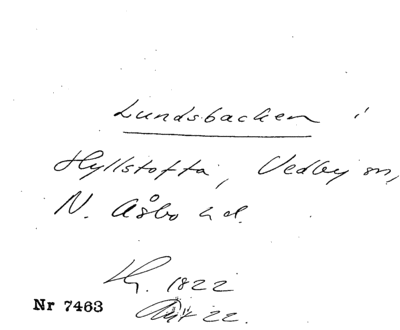 Lundsbacken i
Hyllstofta, Vedby sn,
N. Åsbo hd.
1822
Nr 7463
22.